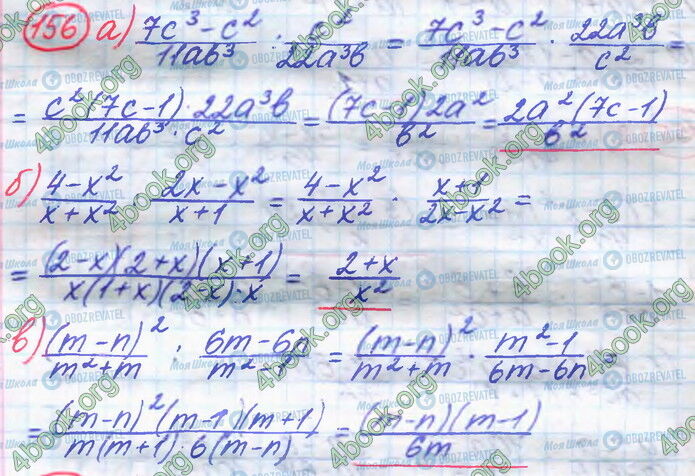 156 а) (7c³-c²)/(11ab³) : c²/(22a³b) = (7c³-c²)/(11ab³) · (22a³b)/c² =
= (c²(7c-1)·22a³b)/(11ab³·c²) = ((7c-1)2a²)/b² = (2a²(7c-1))/b²
б) (4-x²)/(x+x²) : (2x-x²)/(x+1) = (4-x²)/(x+x²) · (x+1)/(2x-x²) =
= ((2-x)(2+x)(x+1))/(x(1+x)(2-x)·x) = (2+x)/x²
в) (m-n)²/(m²+m) : (6m-6n)/(m²-1) = (m-n)²/(m²+m) · (m²-1)/(6m-6n) =
= ((m-n)²(m-1)(m+1))/(m(m+1)·6(m-n)) = ((m-n)(m-1))/(6m)
156
4book.org
Моя Школа
OBOZREVATEL